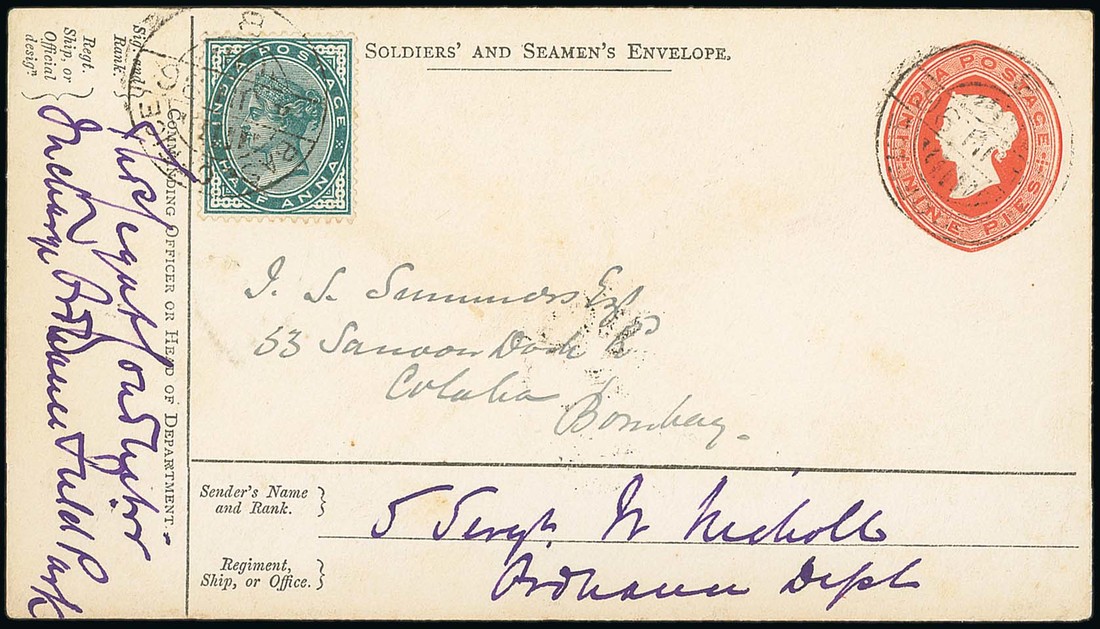 SOLDIERS' AND SEAMEN'S ENVELOPE.
INDIA POSTAGE
HALF ANNA
INDIA POSTAGE
NINE PIES
J. S. Summers Esq
53 Dock
Colaba
Bombay.
Sender's Name
and Rank.
5 Sergt W Nicholls
Regiment,
Ship, or Office.
Ordnance Dept
COMMANDING OFFICER OR HEAD OF DEPARTMENT.
Sig. and
Rank.
Conductor
Regt.
Ship, or
Official
desigⁿ
In charge Ordnance Field Park